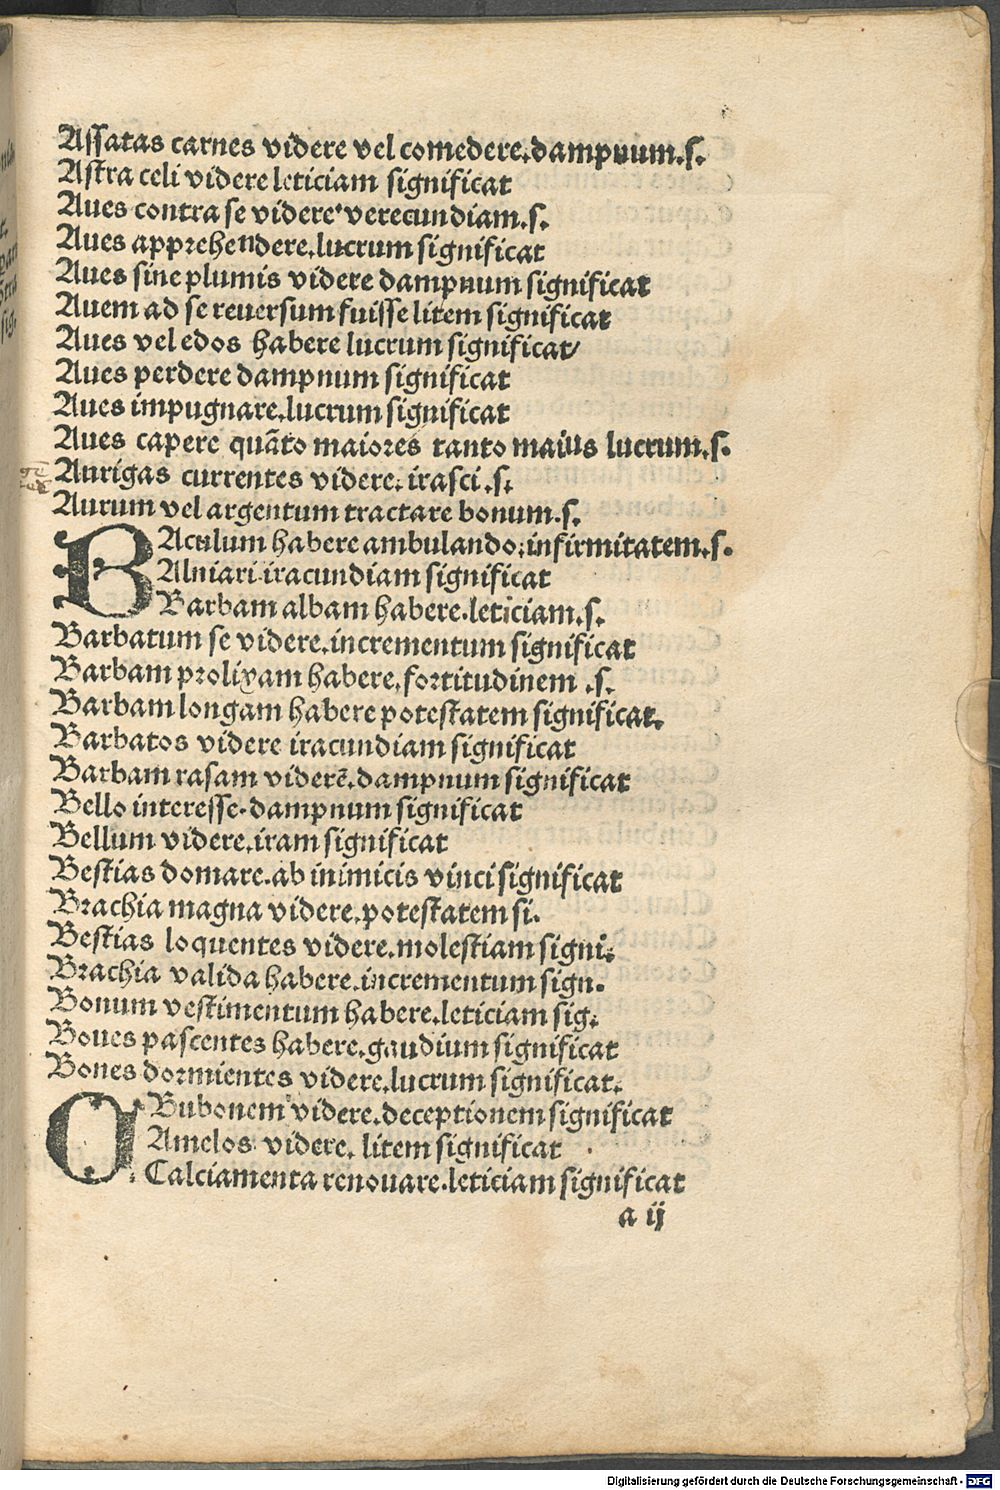 Assatas carnes videre vel comedere.dampuum.s.
Astra celi videre leticiam significat
Aues contra se videre verecundiam.s.
Aues apprehendere.lucrum significat
Aues sine plumis videre dampnum significat
Auem ad se reuersum fuisse litem significat
Aues vel edos habere lucrum significat/
Aues perdere dampnum significat
Aues impugnare.lucrum significat
Aues capere quāto maiores tanto maius lucrum.s.
Aurigas currentes videre. irasci .s.
Aurum vel argentum tractare bonum.s.
BAculum habere ambulando.infirmitatem.s.
Alniari.iracundiam significat
Barbam albam habere.leticiam.s.
Barbatum se videre.incrementum significat
Barbam prolixam habere.fortitudinem .s.
Barbam longam habere potestatem significat.
Barbatos videre iracundiam significat
Barbam rasam viderē.dampnum significat
Bello interesse.dampnum significat
Bellum videre.iram significat
Bestias domare.ab inimicis vinci significat
Brachia magna videre.potestatem si.
Bestias loquentes videre.molestiam signi.
Brachia valida habere.incrementum sign.
Bonum vestimentum habere.leticiam sig.
Boues pascentes habere.gaudium significat
Bones dormientes videre.lucrum significat.
Bubonem videre.deceptionem significat
CAmelos videre. litem significat
Calciamenta renouare.leticiam significat
a ij
Digitalisierung gefördert durch die Deutsche Forschungsgemeinschaft - DFG